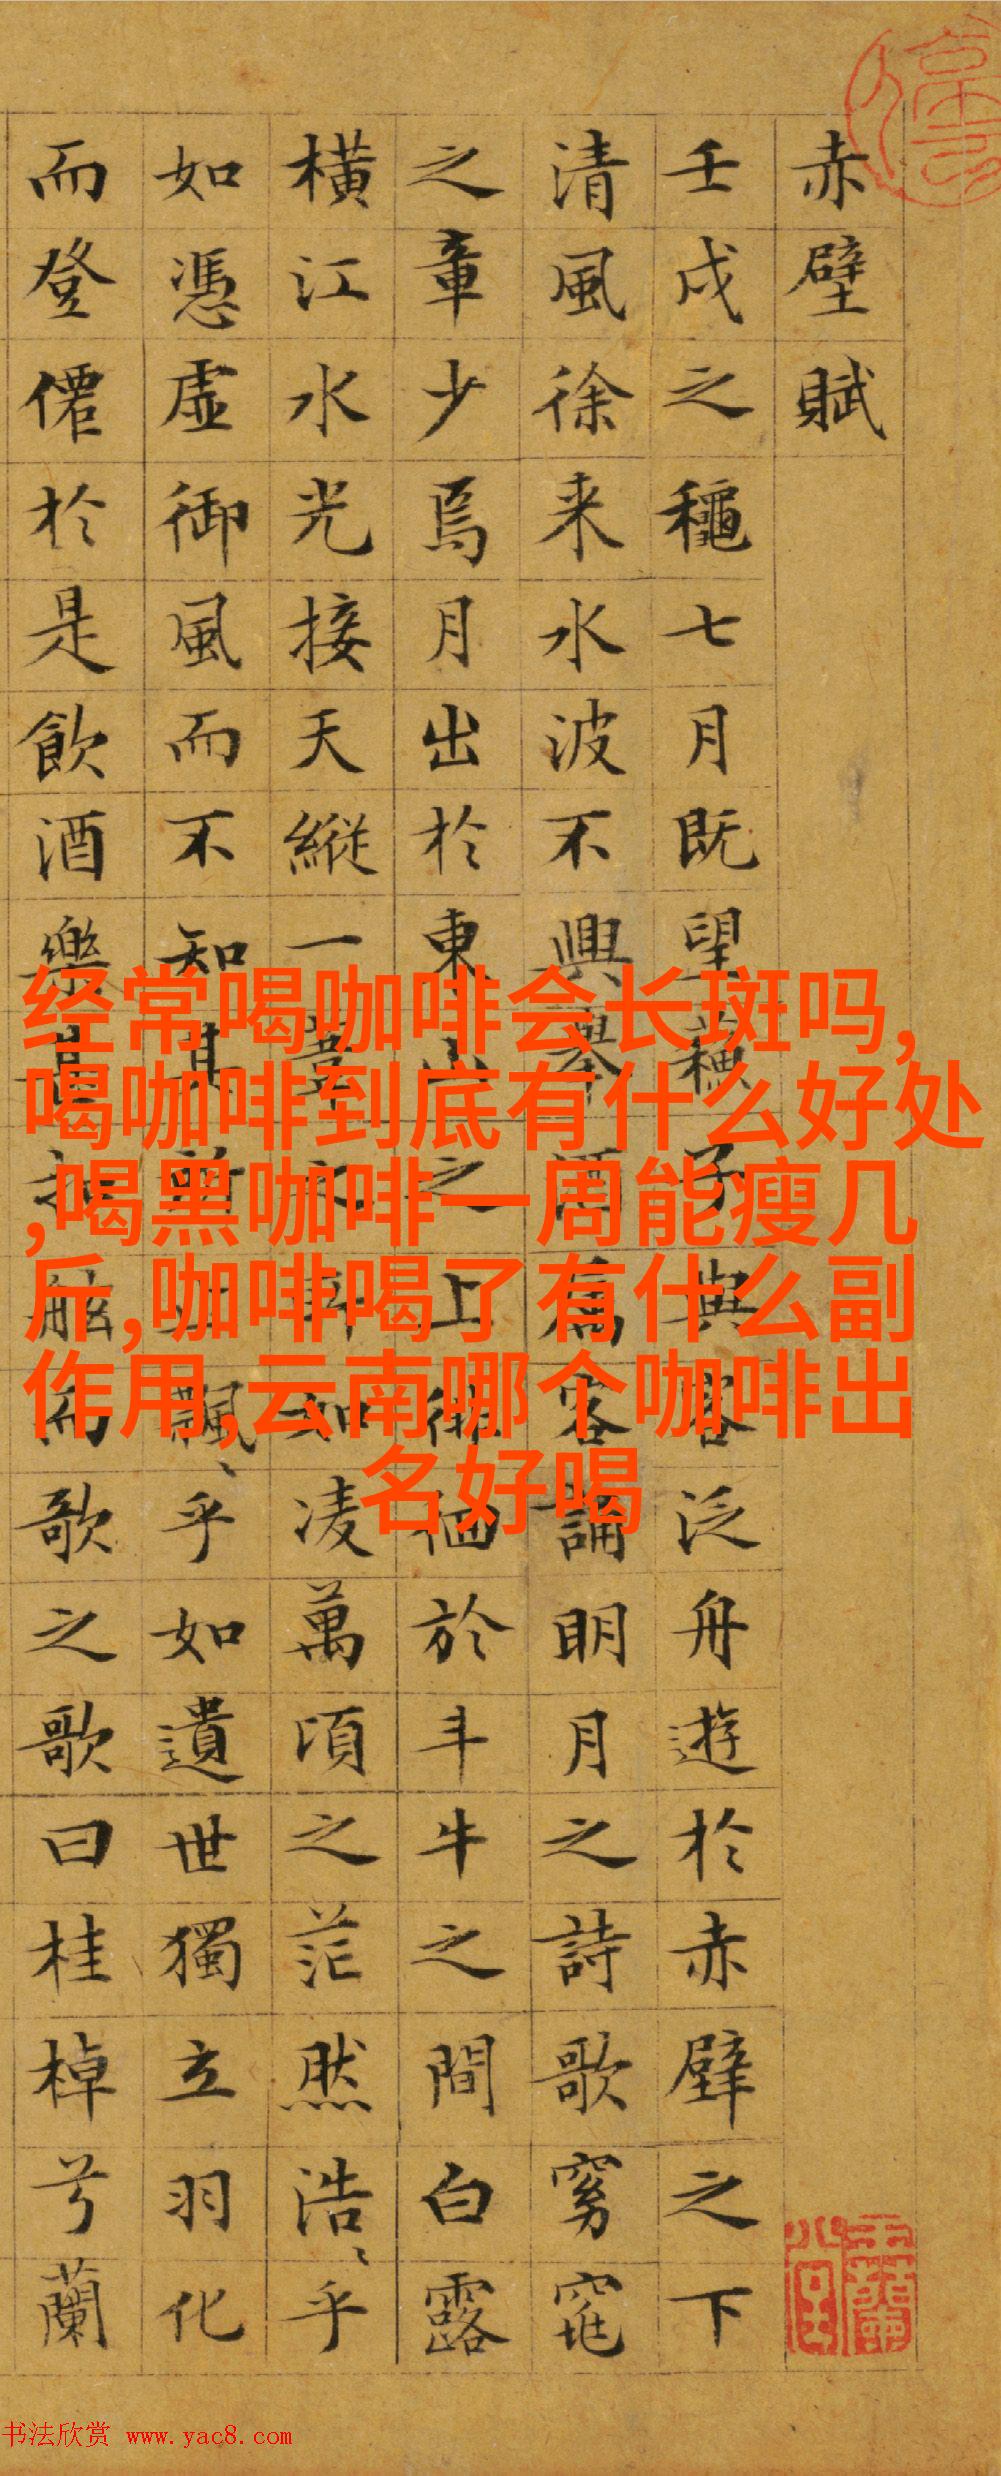 赤壁賦
壬戌之龝七月既望蘇子與客泛舟遊於赤壁之下
清風徐来水波不興舉酒属客誦明月之詩歌窈窕
之章少焉月出於東山之上徘徊於斗牛之間白露
横江水光接天縱一葦之所如凌萬頃之茫然浩〻乎
如憑虛御風而不知其所止飄〻乎如遺世獨立羽化
而登僊於是飲酒樂甚扣舷而歌之歌曰桂棹兮蘭
经常喝咖啡会长斑吗,
喝咖啡到底有什么好处
,喝黑咖啡一周能瘦几
斤,咖啡喝了有什么副
作用,云南哪个咖啡出
名好喝
书法欣赏 www.yac8.com